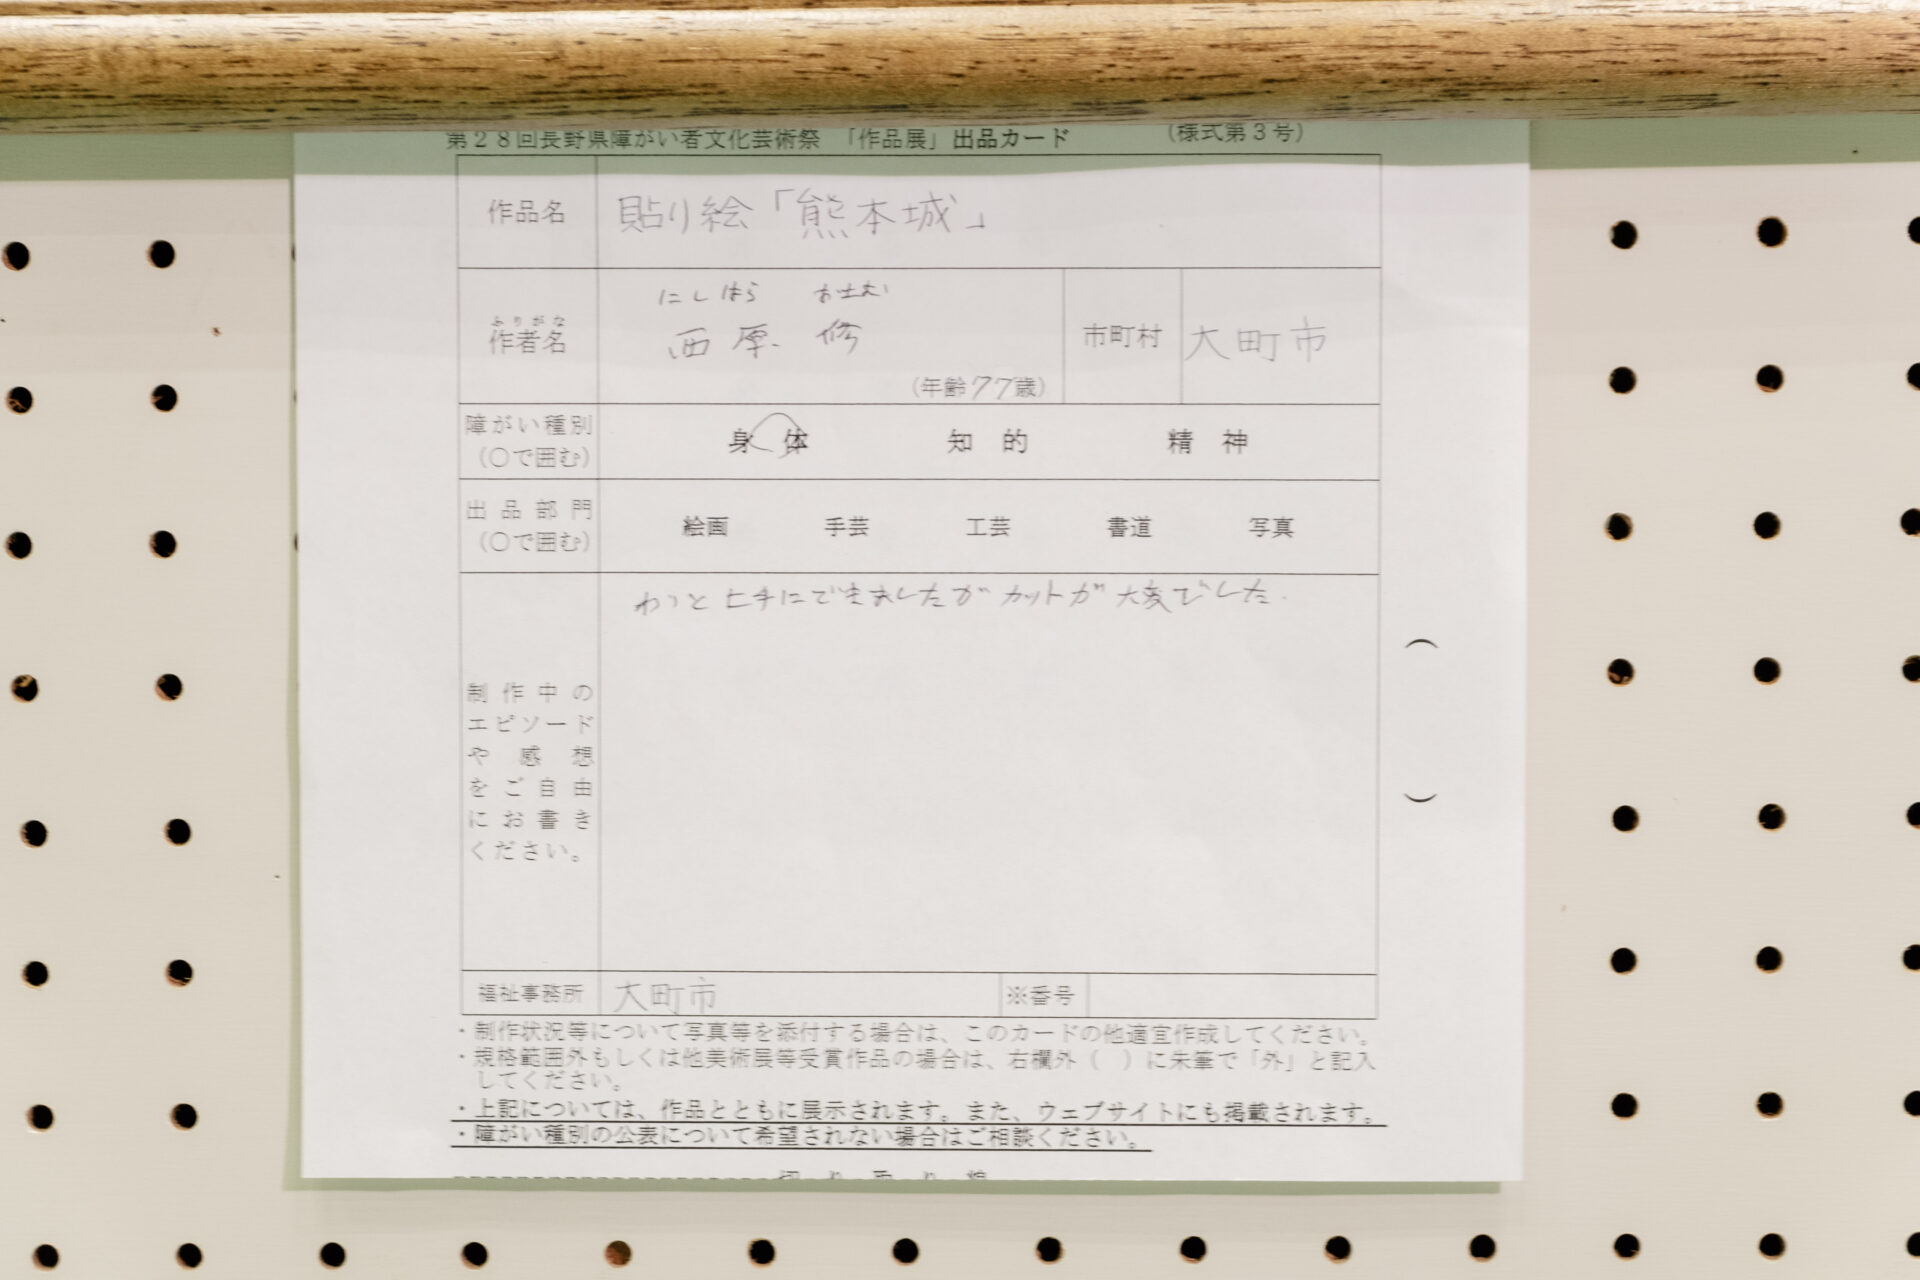 第28回長野県障がい者文化芸術祭 「作品展」出品カード (様式第3号)
作品名 貼り絵「熊本城」
ふりがな にしはら おさむ
作者名 西原 修 市町村 大町市
(年齢77歳)
障がい種別 身体 知的 精神
(○で囲む)
出品部門 絵画 手芸 工芸 書道 写真
(○で囲む)
わりと上手にできましたがカットが大変でした.
制作中の
エピソード
や感想
をご自由
にお書き
ください。
( )
福祉事務所 大町市 ※番号
・制作状況等について写真等を添付する場合は、このカードの他適宜作成してください。
・規格範囲外もしくは他美術展等受賞作品の場合は、右欄外( )に朱筆で「外」と記入
してください。
・上記については、作品とともに展示されます。また、ウェブサイトにも掲載されます。
・障がい種別の公表について希望されない場合はご相談ください。
切り取り線